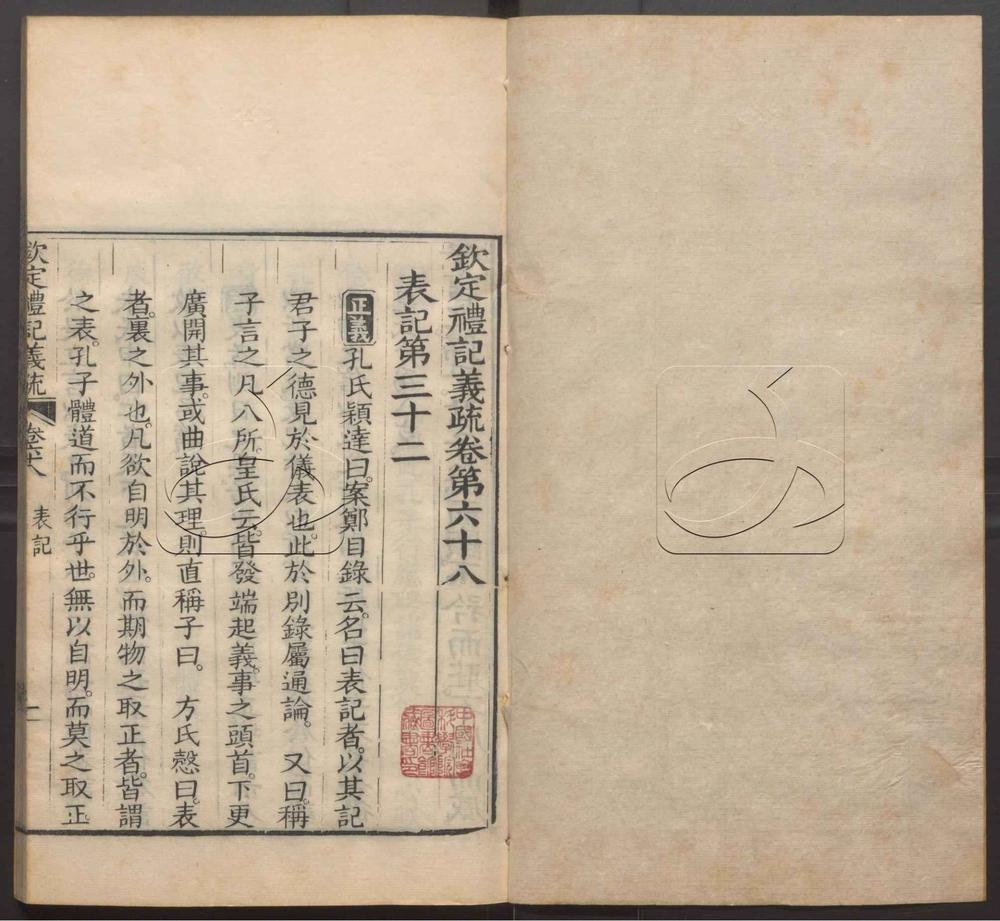 欽定禮記義疏卷第六十八
表記第三十二
正義孔氏穎達曰。案鄭目錄云。名曰表記者。以其記
君子之德見於儀表也。此於別錄屬通論。 又曰。稱
子言之凡八所。皇氏云。皆發端起義。事之頭首。下更
廣開其事。或曲說其理。則直稱子曰。 方氏慤曰。表
者。裏之外也。凡欲自明於外。而期物之取正者。皆謂
之表。孔子體道而不行乎世。無以自明。而莫之取正
欽定禮記義疏 卷六十八 表記 一